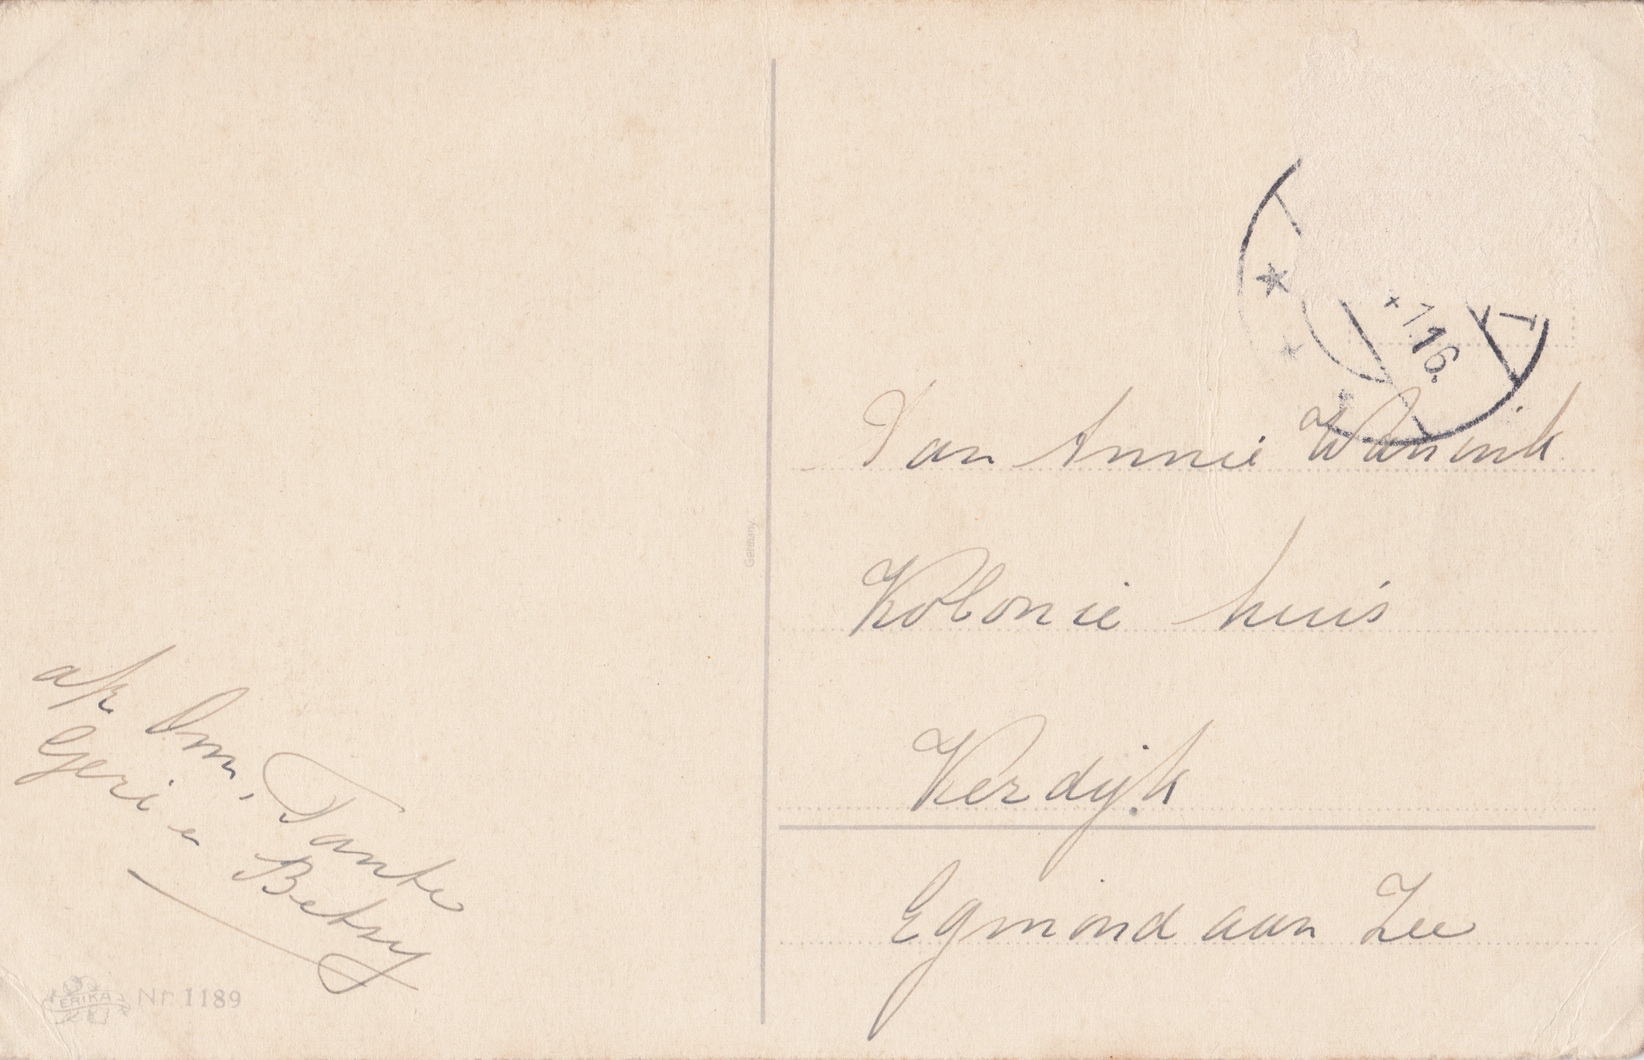 afz Om, Tante
Geri en Betsy
ERIKA Nr. 1189
Germany
1.16.
T
Van Annie Wannink
Kolonie huis
Kerdijk
Egmond aan Zee